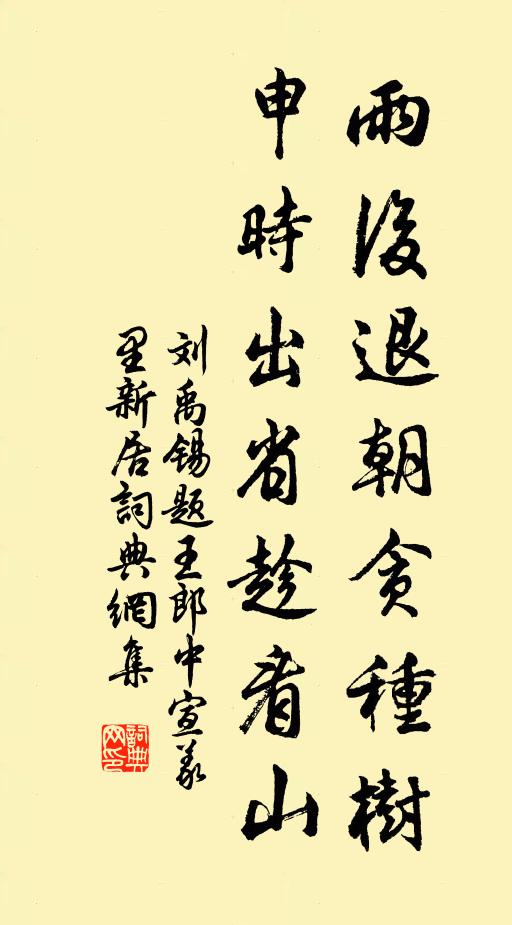 雨後退朝貪種樹
申時出省趁看山
刘禹锡题王郎中宣义
里新居詞典網集
詞典網印